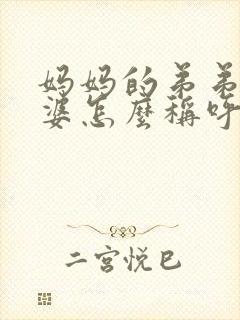 妈妈的弟弟
婆怎麼稱呼
二宮悦巳